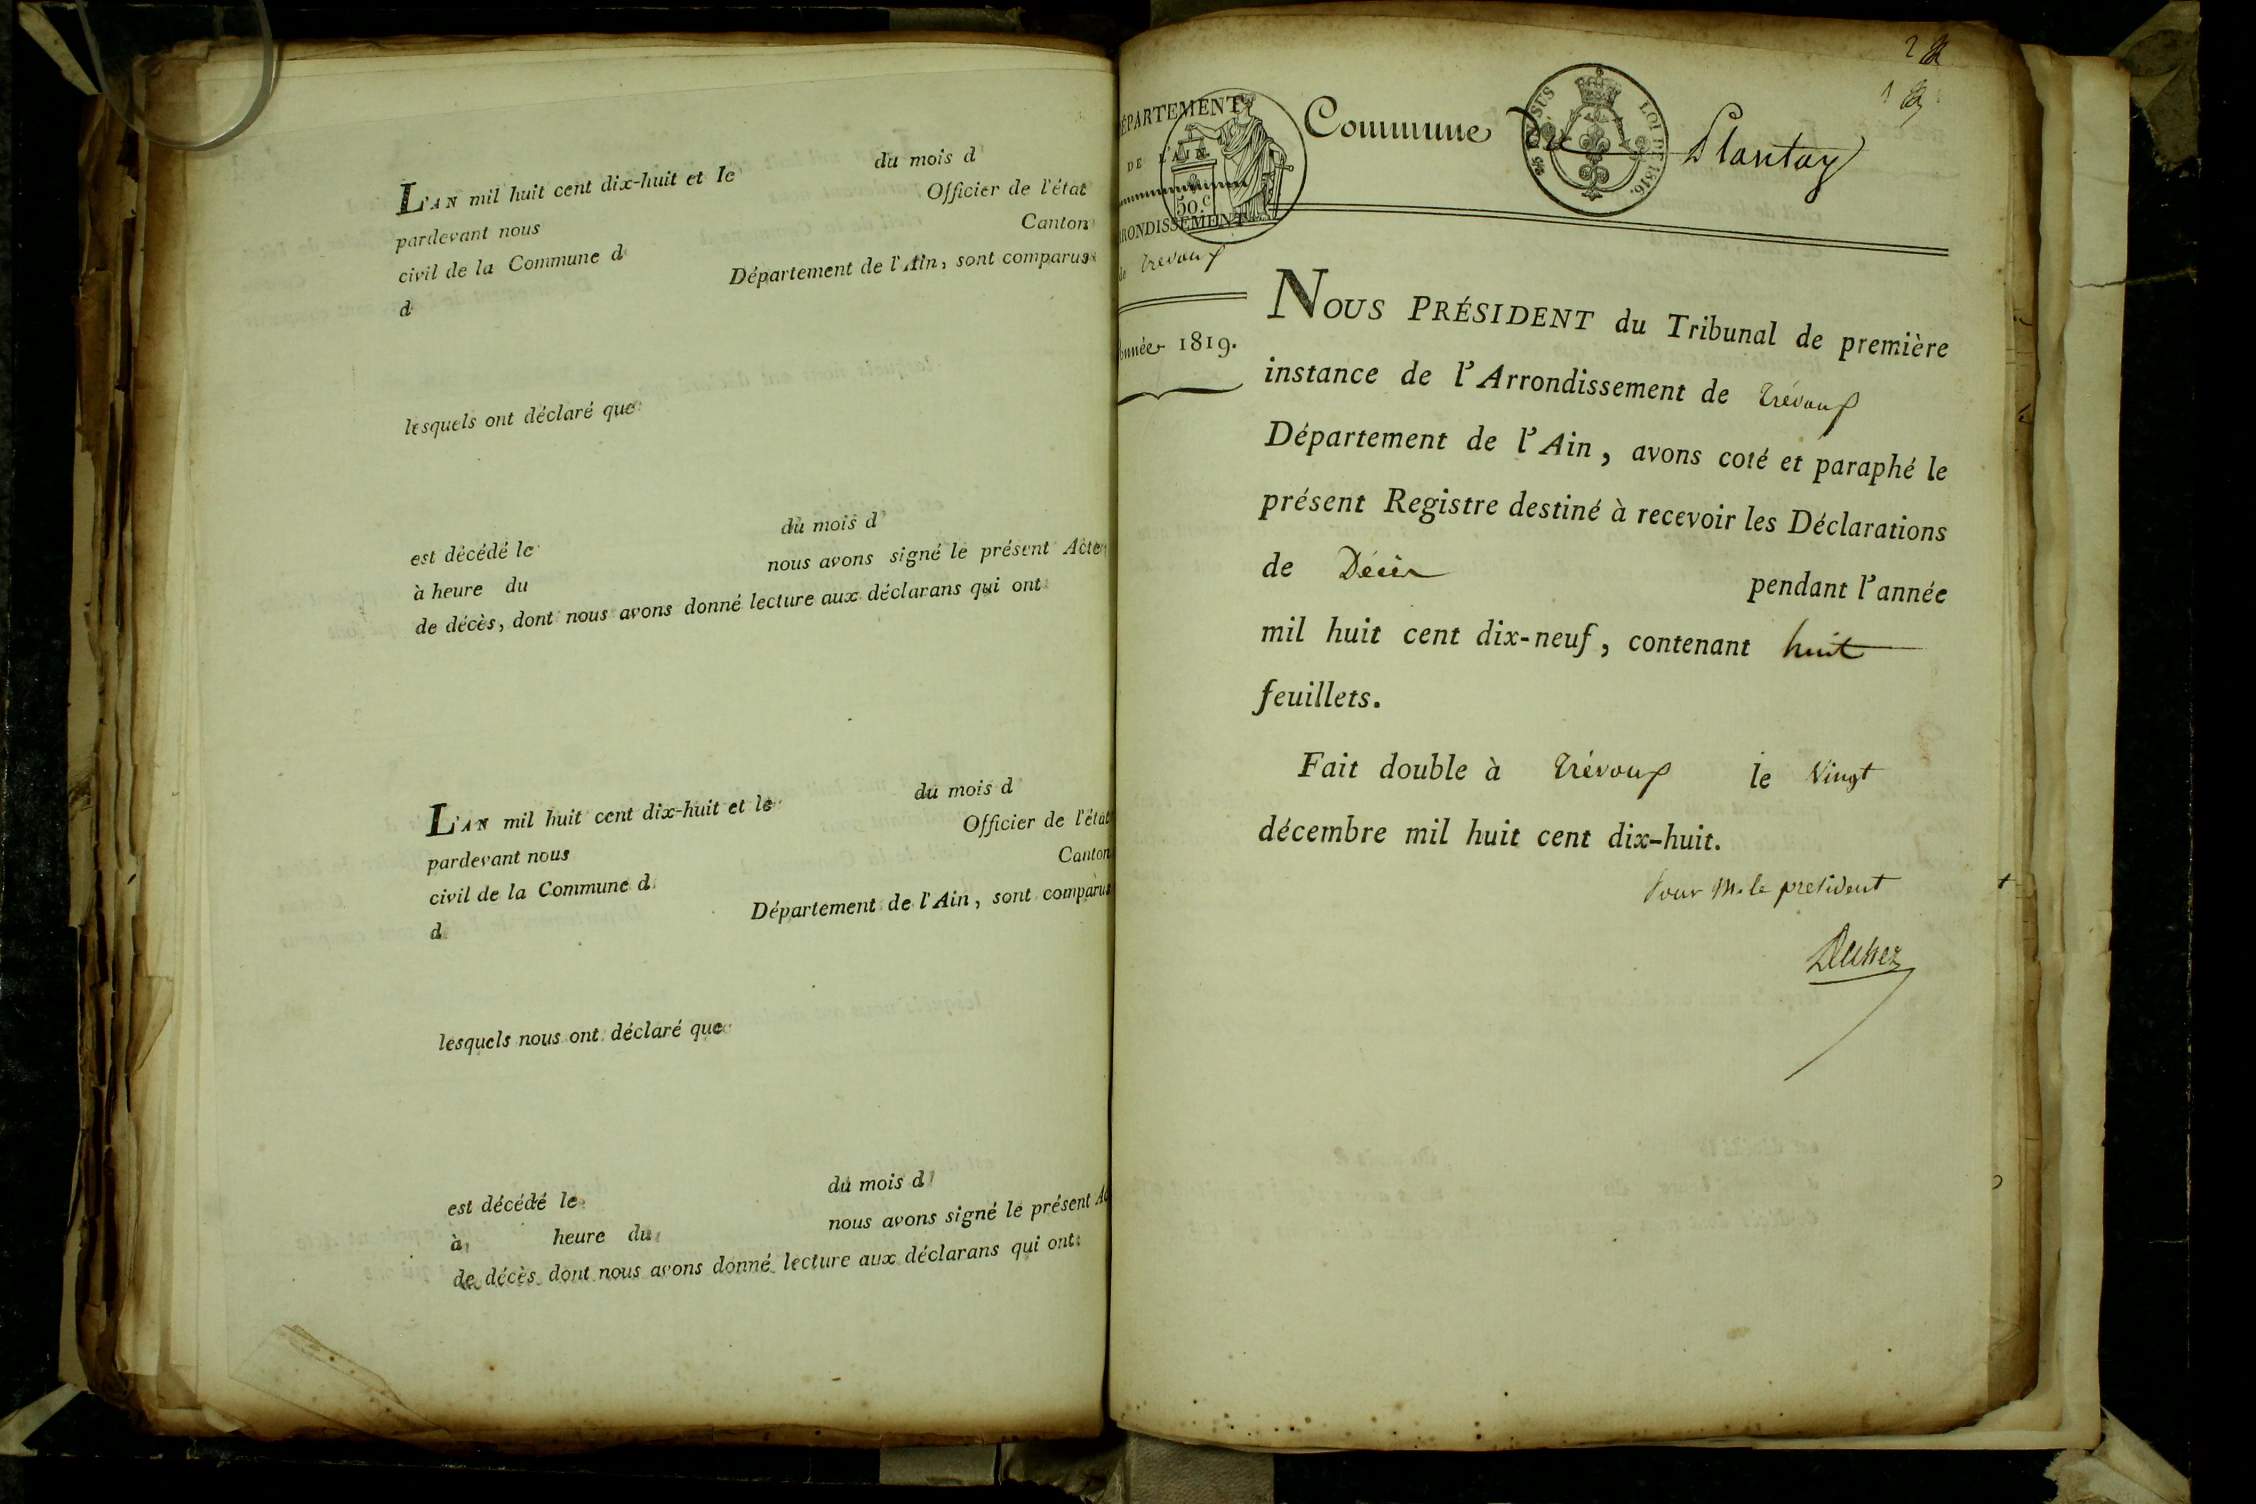 L'AN mil huit cent dix-huit et le du mois d
pardevant nous Officier de l'état
civil de la Commune d Canton
d Département de l'Ain, sont comparus
lesquels ont déclaré que
est décédé le du mois d
à heure du nous avons signé le présent Acte
de décès, dont nous avons donné lecture aux déclarans qui ont
L'AN mil huit cent dix-huit et le du mois d
pardevant nous Officier de l'état
civil de la Commune d Canton
d Département de l'Ain, sont comparus
lesquels nous ont déclaré que
est décédé le du mois d
à heure du nous avons signé le présent Ac
de décès dont nous avons donné lecture aux déclarans qui ont
2
1
ÉPARTEMENT
DE L'AIN.
50.c
RONDISSEMENT
de Trévoux
année 1819.
Commune De Plantay
EN SUS
LOI DE 1816.
NOUS PRÉSIDENT du Tribunal de première
instance de l'Arrondissement de Trévoux
Département de l'Ain, avons coté et paraphé le
présent Registre destiné à recevoir les Déclarations
de Décès pendant l'année
mil huit cent dix-neuf, contenant huit
feuillets.
Fait double à Trévoux le Vingt
décembre mil huit cent dix-huit.
Pour M. le president